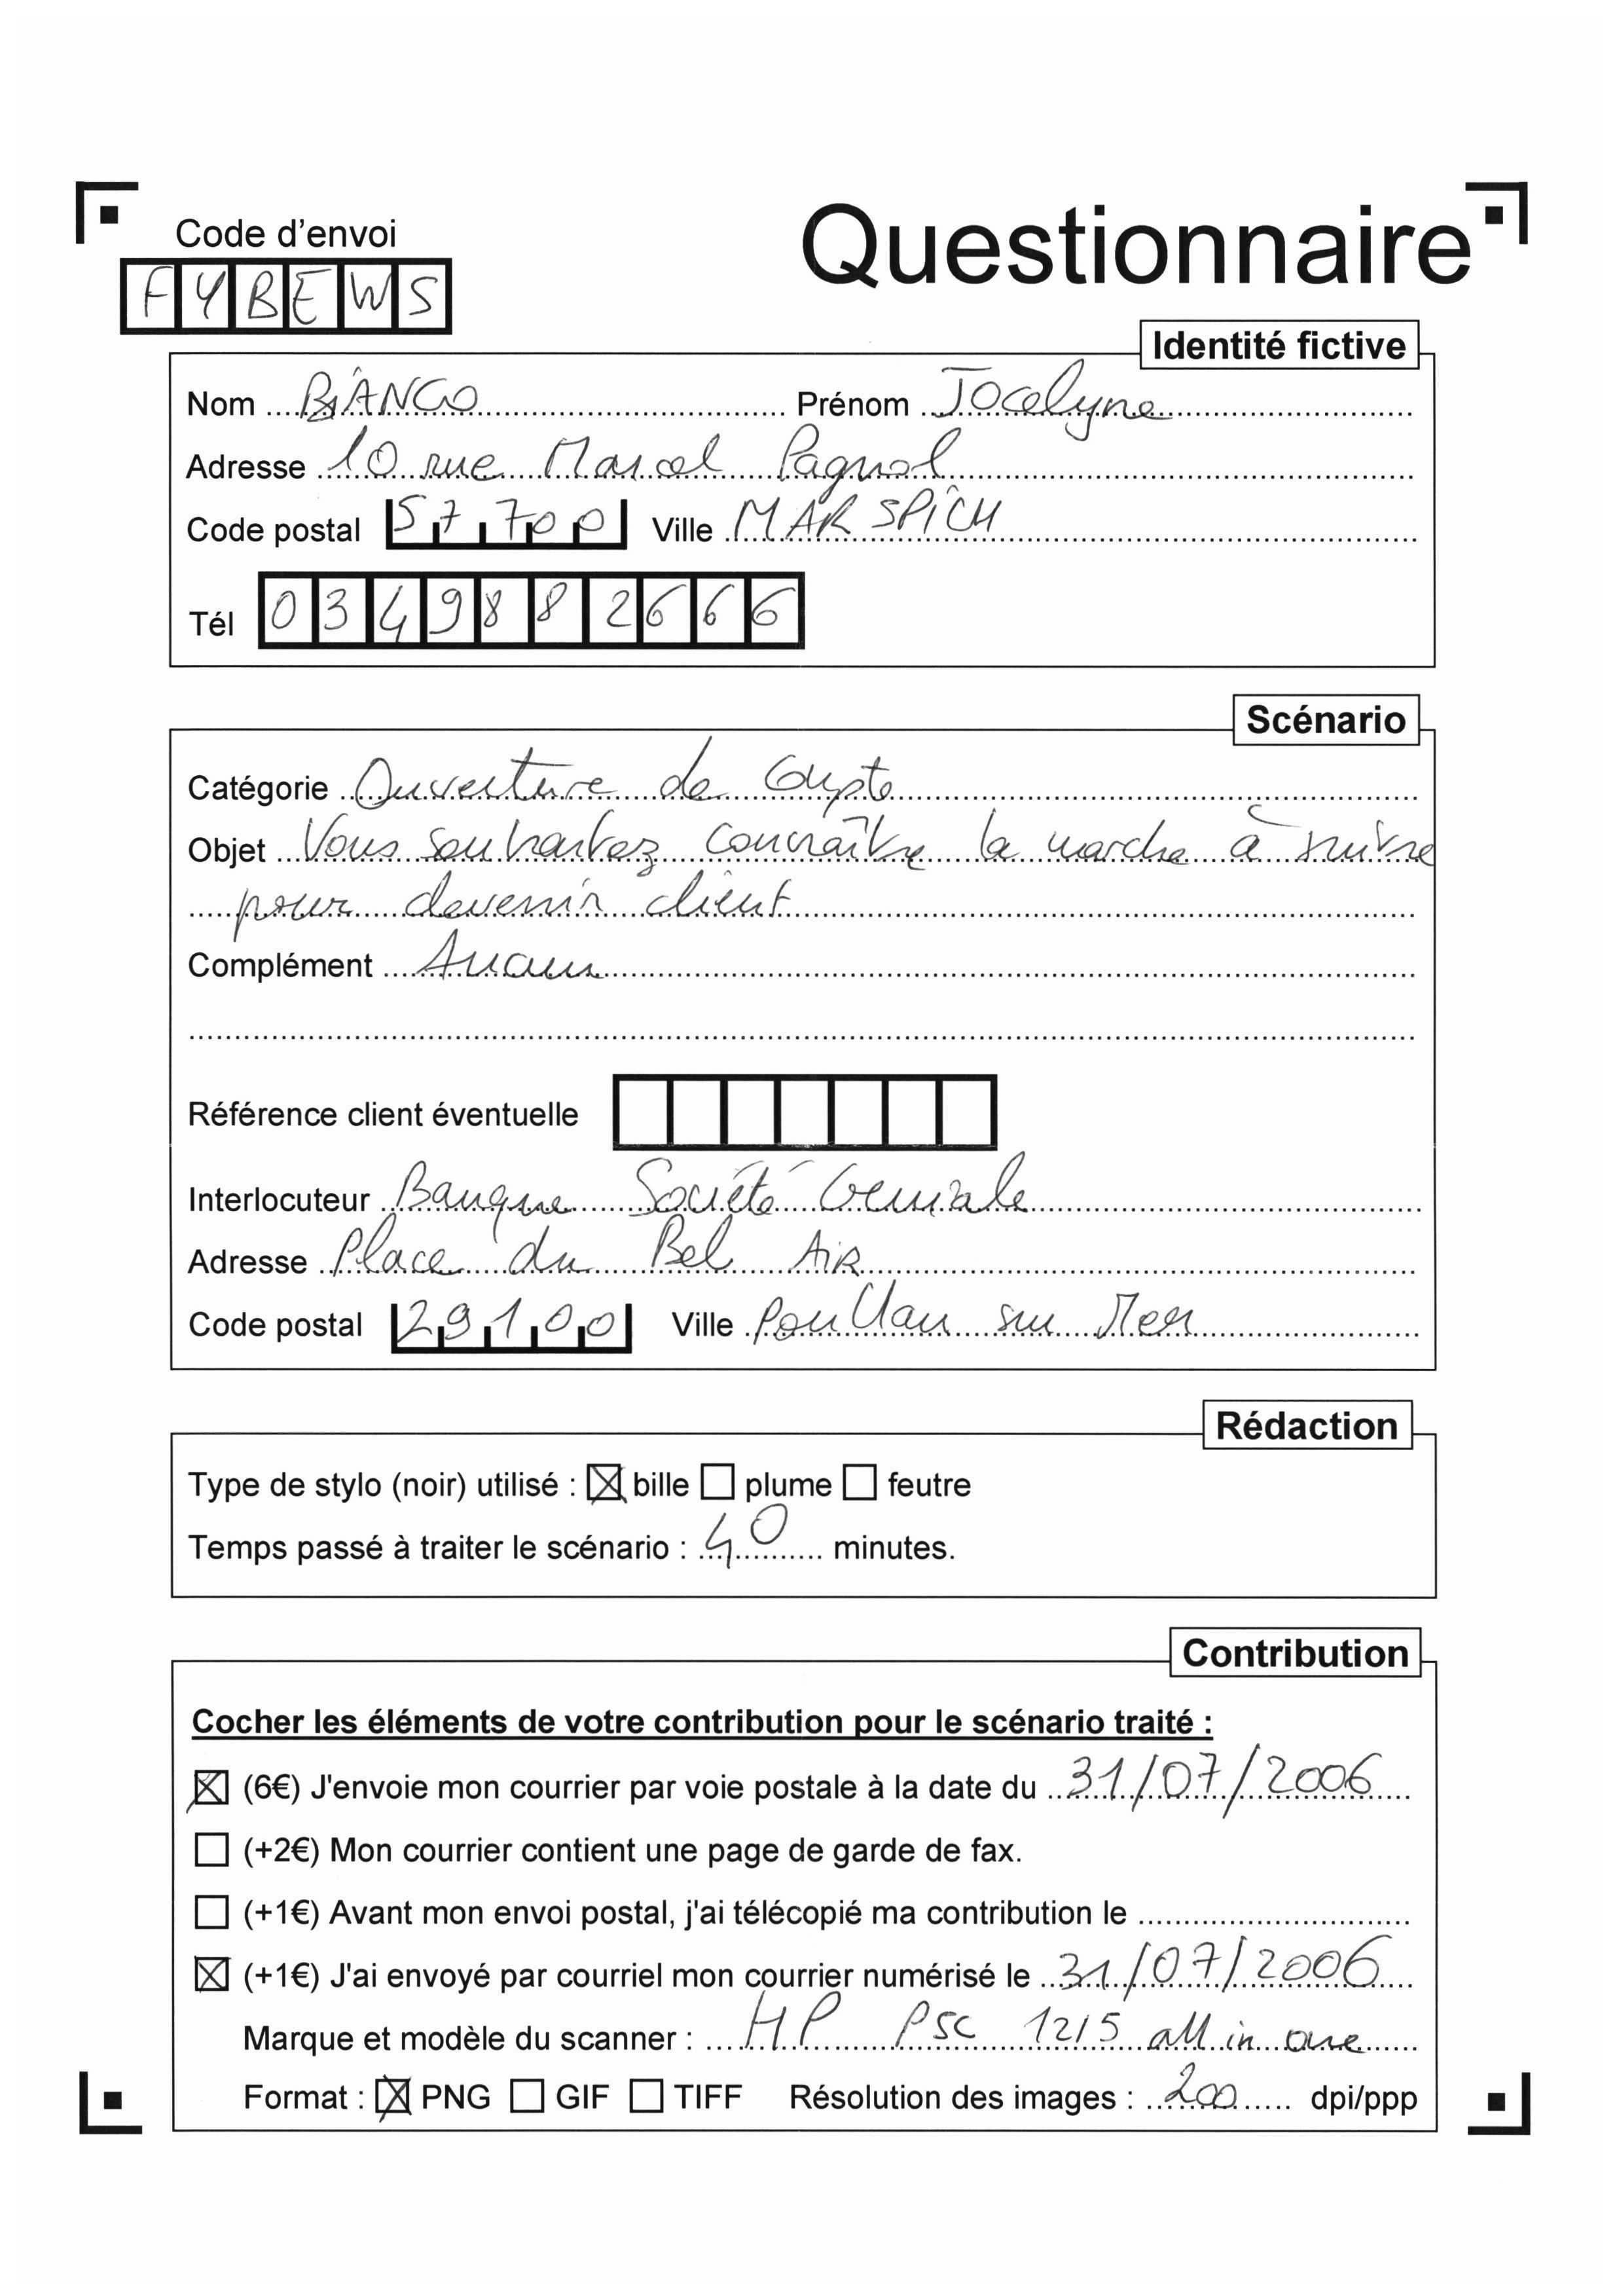 Code d'envoi
FYBEWS
Questionnaire
Identité fictive
Nom BIANCO Prénom Jocelyne
Adresse 10 rue Marcel Pagnol
Code postal 57700 Ville MARSPICH
Tél 0349882666
Scénario
Catégorie Ouverture de Compte
Objet Vous souhaitez connaître la marche à suivre
pour devenir client
Complément Aucun
Référence client éventuelle
Interlocuteur Banque Société Géniale
Adresse Place du Bel Air
Code postal 29100 Ville Poullan sur Mer
Rédaction
Type de stylo (noir) utilisé : ☒ bille ☐ plume ☐ feutre
Temps passé à traiter le scénario : 40 minutes.
Contribution
Cocher les éléments de votre contribution pour le scénario traité :
☒ (6€) J'envoie mon courrier par voie postale à la date du 31/07/2006
☐ (+2€) Mon courrier contient une page de garde de fax.
☐ (+1€) Avant mon envoi postal, j'ai télécopié ma contribution le
☒ (+1€) J'ai envoyé par courriel mon courrier numérisé le 31/07/2006
Marque et modèle du scanner : HP PSC 1215 all in one
Format : ☒ PNG ☐ GIF ☐ TIFF Résolution des images : 200 dpi/ppp